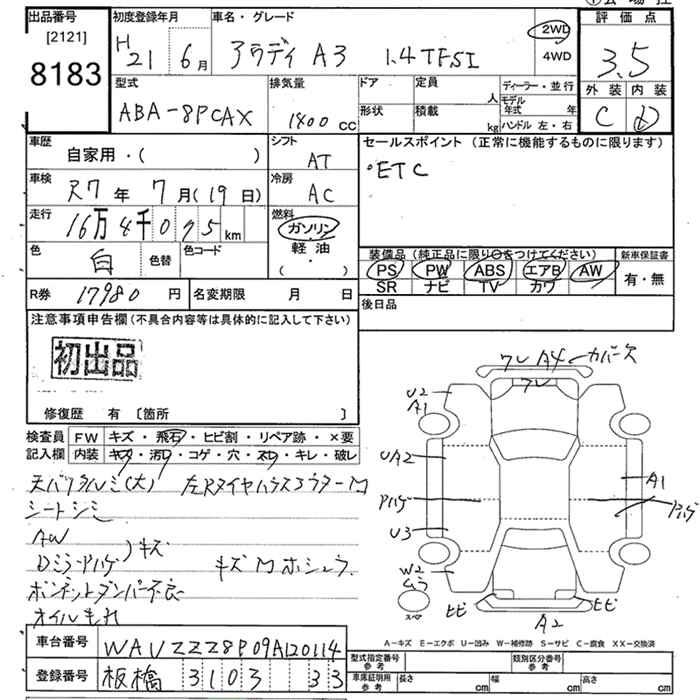 出品番号 初度登録年月 車名・グレード 評価点
[2121] H 21 6月 アウディ A3 1.4TFSI 2WD
8183 4WD 3.5
型式 排気量 ドア 定員 人 ディーラー・並行 外装 内装
ABA-8PCAX 1400 cc 形状 積載 kg モデル年式 年 C D
ハンドル 左・右
車歴 シフト セールスポイント (正常に機能するものに限ります)
自家用・( ) AT ・ETC
車検 冷房
R7年 7月(19日) AC
走行 燃料
16万4千075km ガソリン
色 色替 色コード 軽油
白 ・( )
装備品 (純正品に限り○をつけてください) 新車保証書
PS PW ABS エアB AW 有・無
SR ナビ TV カワ
R券 17980 円 名変期限 月 日 後日品
注意事項申告欄 (不具合内容等は具体的に記入して下さい)
初出品
修復歴 有 〔箇所 〕
検査員 FW キズ・飛石・ヒビ割・リペア跡・×要
記入欄 内装 キズ・汚レ・コゲ・穴・スレ・キレ・破レ
天バリタルミ(大) 左RタイヤハウスアウターM
シートシミ
AW
Dミラーアハゲ )キズ キズMホシュウ
ボンネットダンパー不良
オイルもれ
ワレ A4 カバー欠
ワレ
U2
A1
UA2
アハゲ
U3
W2
ムラ
A1
アハゲ
ヒビ ヒビ
A2
スペア
A-キズ E-エクボ U-凹み W-補修跡 S-サビ C-腐食 XX-交換済
車台番号 WAUZZZ8P09A120114
登録番号 板橋 3103 33
型式指定番号 参考 類別区分番号 参考
車庫証明用 参考 長さ cm 幅 cm 高さ cm